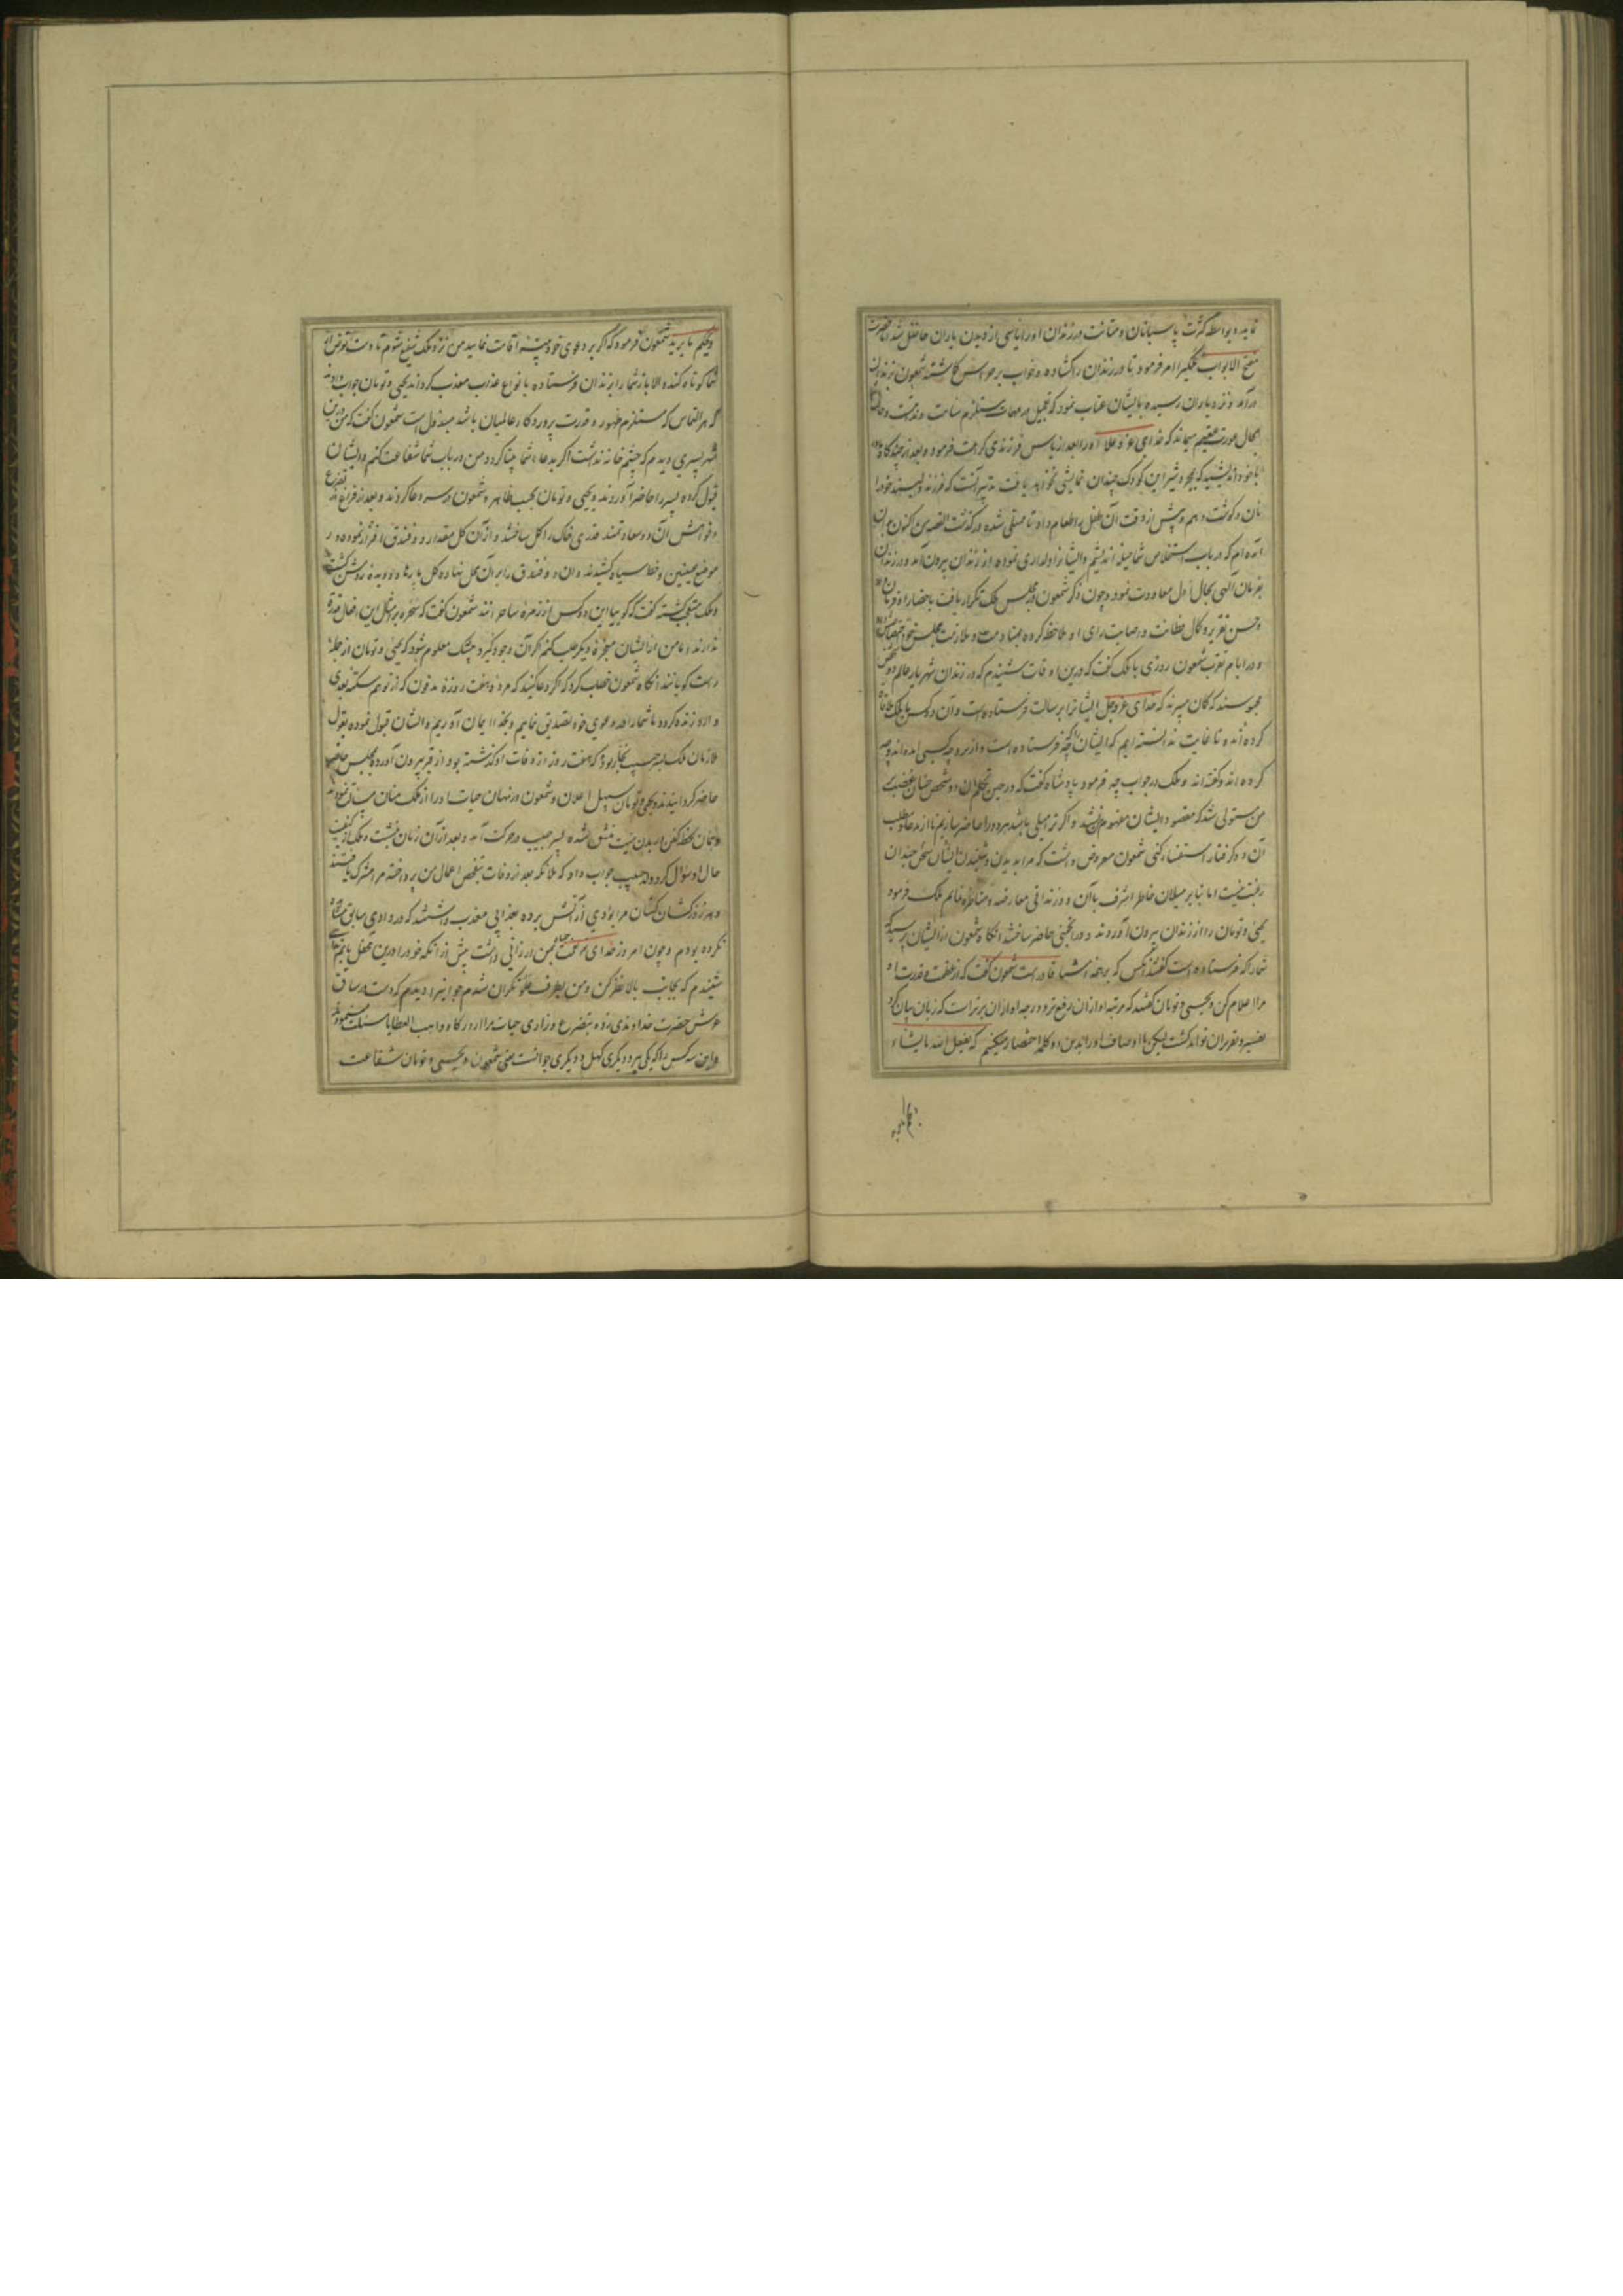 نماید و بواسطه کثرت پاسبانان و متانت در زندان او را یاسی از دیدن یاران حاصل شد حضرت
مفتح الابواب ملکیرا امر فرمود تا در زندان را گشاده و خواب بر حواس گماشته شمعون بزندان
درآمد و نزد یاران رسیده با ایشان عتاب نمود که تعجیل در مهمات مستلزم ندامتست و حال شما
بحال عورت عقیم میماند که خدای عز و علا او را بعد از یاس فرزندی کرامت فرمود و بعد از چندگاه
با خود اندیشید که بمجرد شیر این کودک چندان نمایشی نخواهد یافت تدبیر آنست که فرزند دلبند خود را
نان و گوشت دهم و پیش از وقت آن طفل را طعام داد تا ممتلی شده درگذشت القصه من اکنون بدان
آمده ام که در باب استخلاص شما حیله اندیشم و ایشانرا دلداری نموده از زندان بیرون آمد و در زندان
بفرمان الهی بحال اول معاودت نمود و چون ذکر شمعون در مجلس ملک تکرار یافت باحضار او فرمان داد
و حسن تقریر و کمال فطانت و اصابت رای او ملاحظه کرده بمنادمت و ملازمت مجلس خود
و در ایام تقرب شمعون روزی با ملک گفت که درین اوقات شنیدم که در زندان شهریار عالم دو شخص
محبوسند که گمان میبرند که خدای عز و جل ایشانرا برسالت فرستاده است و آن دو کس با ملک ملاقات
کرده اند و تا غایت ندانسته ایم که ایشانرا که فرستاده است و از برای چه کسی آمده اند و چه
کرده اند و گفته اند و ملک در جواب چه فرمود پادشاه گفت که در حین تکلم آن دو شخص چنان غضب بر
من مستولی شد که مقصود ایشان مفهوم من نشد و اگر ترا میلی باشد هر دو را حاضر سازیم تا از مدعا و مطلب
آن دو گرفتار استفسار کنی شمعون معروض داشت که مرا بدیدن و شنیدن ایشان سخن چندان
رغبت نیست اما بنا بر میلان خاطر اشرف با آن دو زندانی معارضه و مناظره نمایم ملک فرمود
یحیی و تومان را از زندان بیرون آوردند و در انجمنی حاضر ساختند آنگاه شمعون از ایشان پرسید که
شما را که فرستاده است گفتند آنکس که بر همه اشیا قادر است شمعون گفت که از عظمت و قدرت او
مرا اعلام کن و یحیی و تومان گفتند که مرتبه او از آن رفیع تر و درجه او از آن برتر است که زبان بیان
تفسیر و تقریر آن تواند گشت لیکن ما اوصاف او را بدین دو کلمه اختصار میکنیم که یفعل الله ما یشاء
و یحکم ما یرید
و یحکم ما یرید شمعون فرمود که اگر بر دعوی خود بینه اقامت نمایید من نزد ملک شفیع شوم تا دست تعرض از
شما کوتاه کند و الا باز شما را بزندان فرستاده بانواع عذاب معذب گرداند یحیی و تومان جواب دادند
که هر التماس که مستلزم ظهور قدرت پروردگار عالمیان باشد مبذول است شمعون گفت که من درین
شهر پسری دیدم که چشم خانه نداشت اگر بدعاء شما بینا گردد من در باب شما شفاعت کنم و ایشان
قبول کرده پسر را حاضر آوردند و یحیی و تومان بحسب ظاهر و شمعون در سر دعا کردند و بعد از فراغ تضرع
و خواهش آن دو سعادتمند قدری خاک را گل ساختند و از آن گل مقدار دو فندق افراز نموده در
موضع عینین دو خط سیاه کشیدند و آن دو فندق را بر آن محل نهاده گل پارها دو دیده روشن گشت
و ملک متعجب گشته گفت که گوییا این دو کس از زمره ساحرانند شمعون گفت که سحره بر مثل این افعال قدرت
ندارند اما من از ایشان معجزه دیگر طلب کنم اگر آن وجود گیرد بیشک معلوم شود که یحیی و تومان از جمله
راست گویانند آنگاه شمعون خطاب کرد که اگر دعا کنید که مرده هفت روزه مدفون که از تو هم
و او زنده گردد ما شما را در دعوی خود تصدیق نماییم و بخدا ایمان آوریم و ایشان قبول نموده بقول
ملازمان ملک پسر حبیب نجار بود که هفت روز از وفات او گذشته بود از قبر بیرون آورده بمجلس
حاضر گردانیدند و یحیی و تومان بر سبیل اعلان و شمعون در نهان حیات او را از ملک منان مسئلت نمودند
و همان لحظه کفن از بدن میت منشق شده پسر حبیب در حرکت آمد و بعد از آن زمان بنشست و ملک از کیفیت
حال او سؤال کرد ولد حبیب جواب داد که ملائکه بعد از وفات بتفحص اعمال من پرداخته مرا مشرک یافتند
و هر روز کشان کشان مرا بوادی از آتش برده بعذابی معذب داشتند که در وادی سابق مشاهده
نکرده بودم و چون امروز خدای عز حیات بمن ارزانی داشت پیش از آنکه خود را درین محفل یابم
شنیدم که بجانب بالا نظر کن و من بطرف علو نگران شدم جوانیرا دیدم که دست در ساق
عرش حضرت خداوندی زده بتضرع و زاری حیات مرا از درگاه واهب العطایا مسئلت مینمود
و این سه کس را که یکی پیر و دیگری کهل و دیگری جوانست یعنی شمعون و یحیی و تومان شفاعت